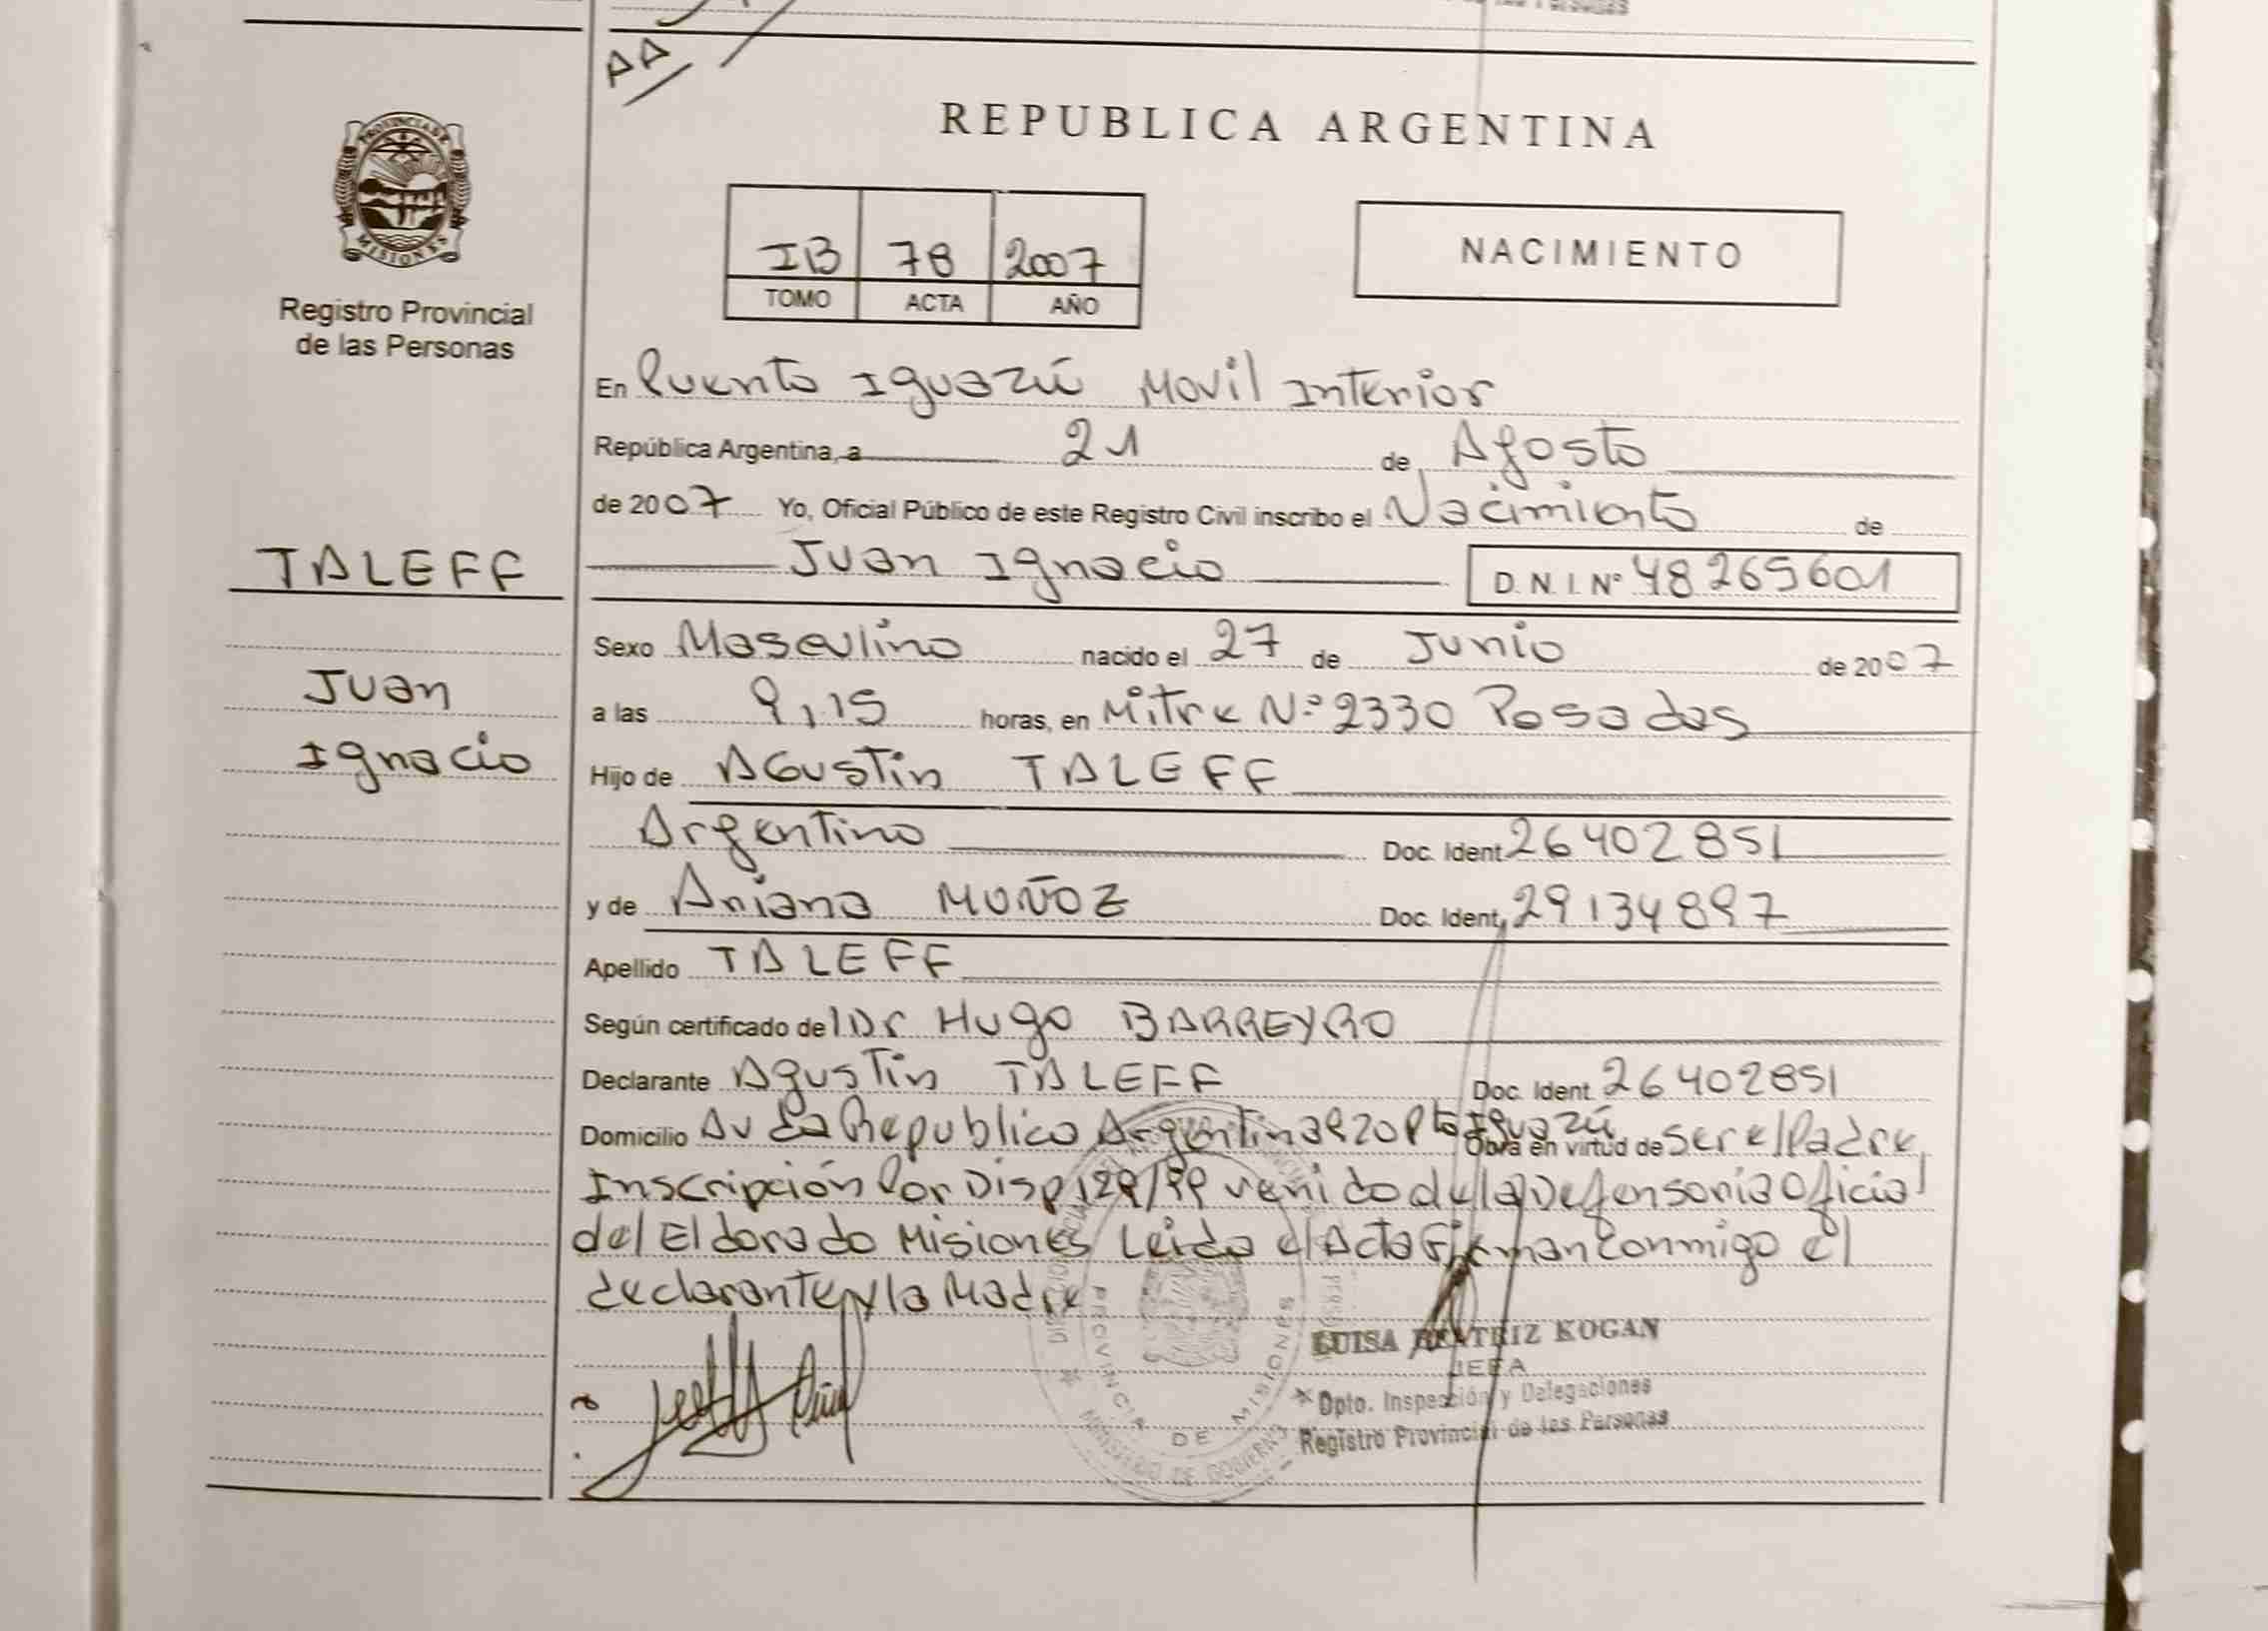 REPUBLICA ARGENTINA
PROVINCIA DE
MISIONES
Registro Provincial
de las Personas
IB 78 2007
TOMO ACTA AÑO
NACIMIENTO
En Puerto Iguazú Movil Interior
República Argentina, a 21 de Agosto
de 2007 Yo, Oficial Público de este Registro Civil inscribo el Nacimiento de
TALEFF
Juan Ignacio D.N.I. Nº 48265601
Sexo Masculino nacido el 27 de Junio de 2007
Juan
a las 9,15 horas, en Mitre Nº 2330 Posadas
Ignacio
Hijo de Agustin TALEFF
Argentino Doc. Ident. 26402851
y de Ariana MUÑOZ Doc. Ident. 29134897
Apellido TALEFF
Según certificado del Dr Hugo BARREYRO
Declarante Agustin TALEFF Doc. Ident. 26402851
Domicilio Av La Republica Argentina Pto Iguazú Obra en virtud de ser el Padre
Inscripción Por Disp 129/99 venido de la Defensoria Oficial
del Eldorado Misiones Leida el Acta Firman Conmigo el
declarante y la Madre
LUISA BEATRIZ KOGAN
JEFA
Dpto. Inspección y Delegaciones
Registro Provincial de las Personas
PROVINCIA DE MISIONES
MINISTERIO DE GOBIERNO